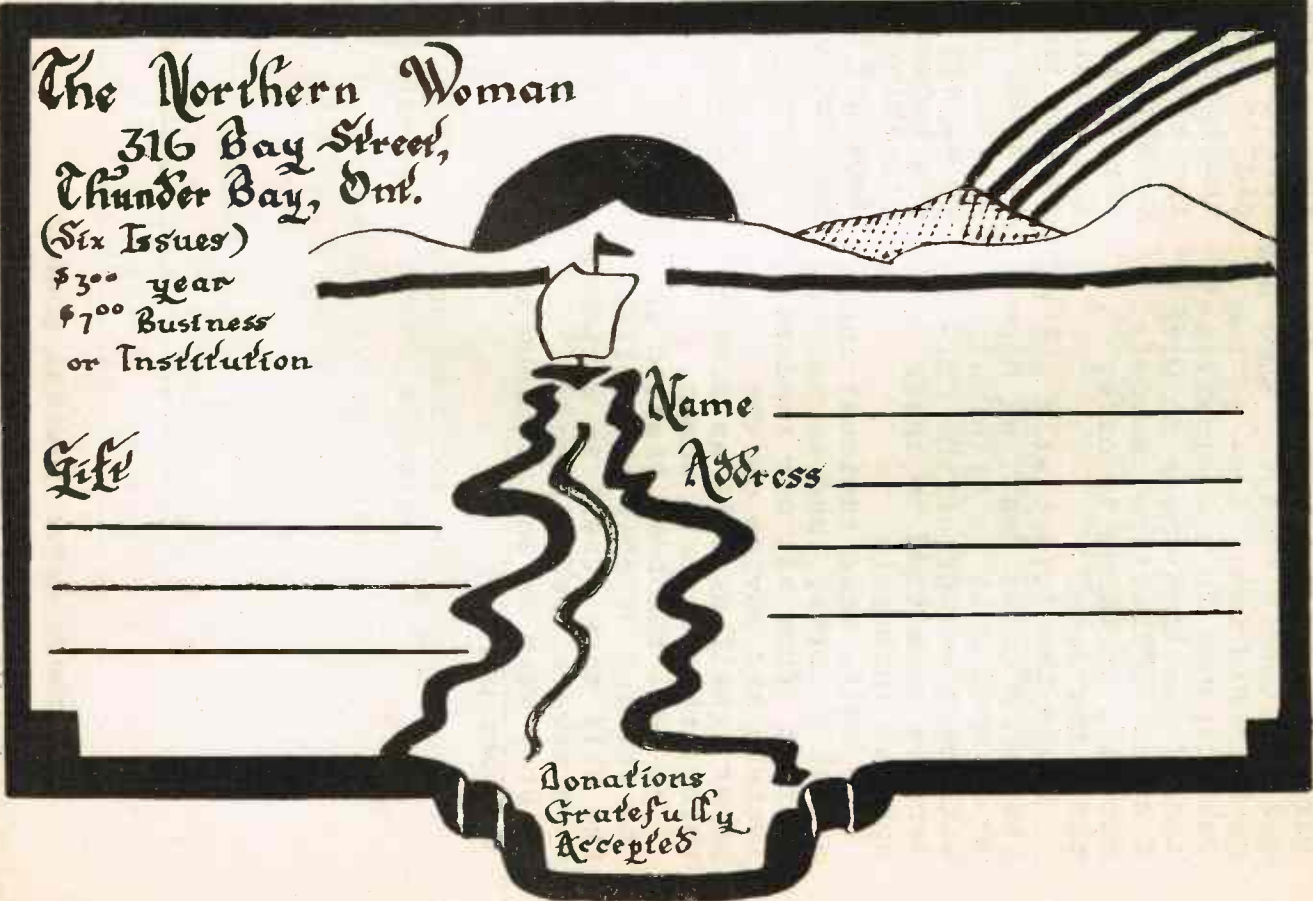 The Northern Woman
316 Bay Street,
Thunder Bay, Ont.
(Six Issues)
$3.00 year
$7.00 Business
or Institution
Gift
Name
Address
Donations
Gratefully
Accepted